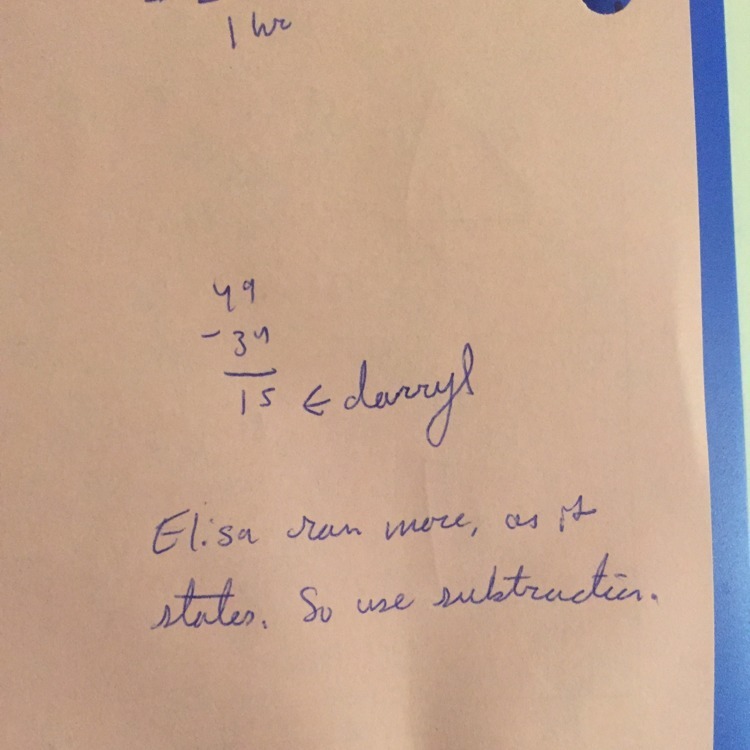 1 hr
49
- 34
15 ← darryl
Elisa ran more, as it
states. So use subtraction.